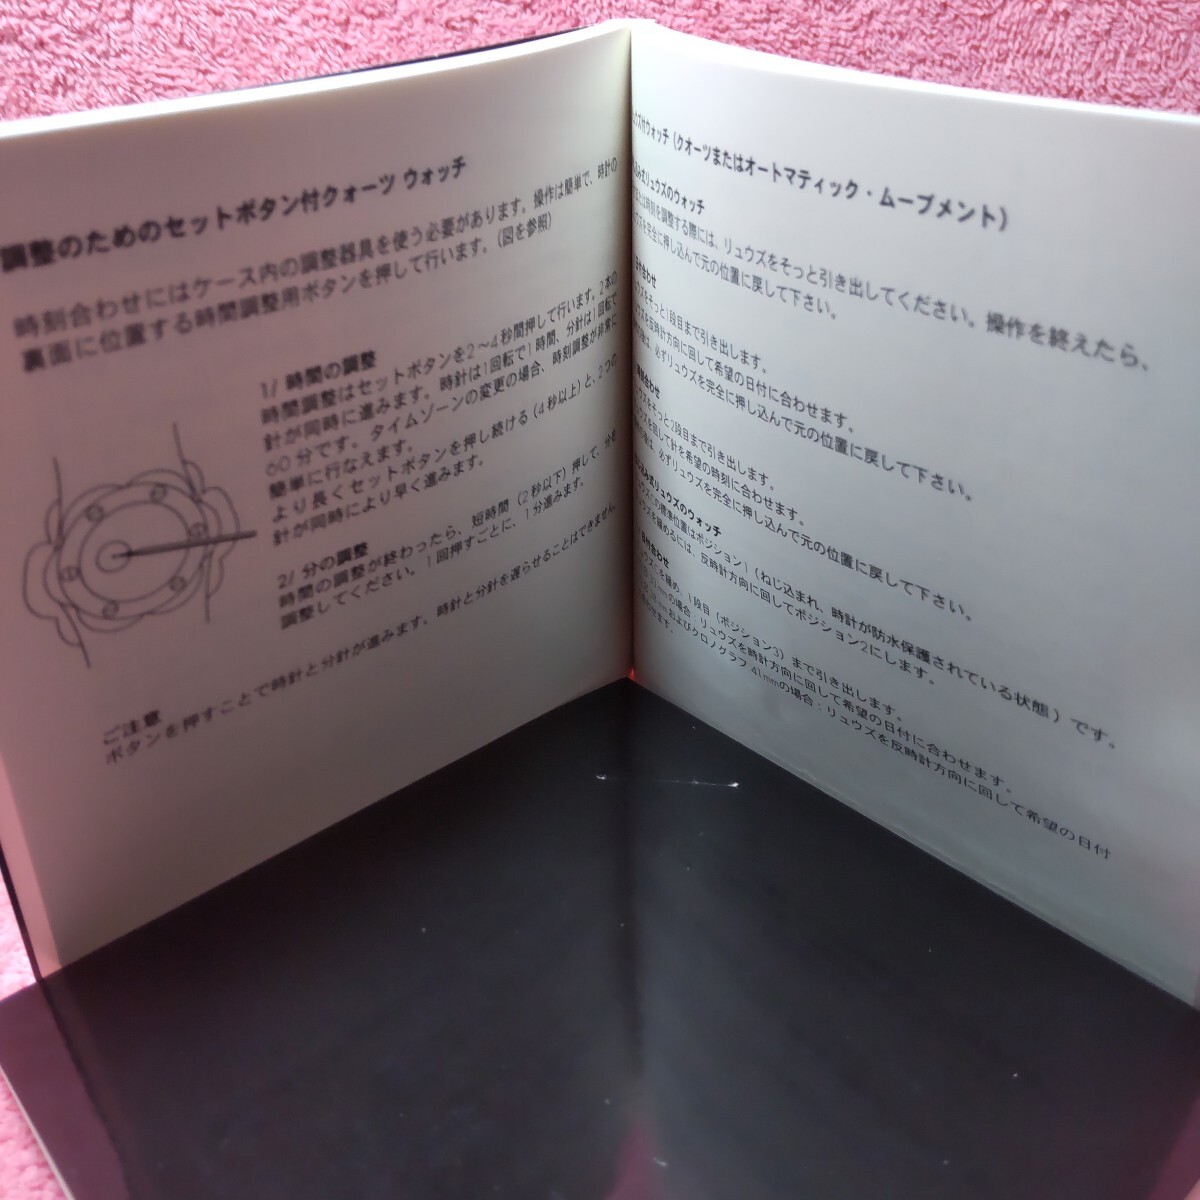 調整のためのセットボタン付クォーツ ウォッチ
時刻合わせにはケース内の調整器具を使う必要があります。操作は簡単で、時計の
裏面に位置する時間調整用ボタンを押して行います。（図を参照）
1/ 時間の調整
時間調整はセットボタンを2〜4秒間押して行います。2本の
針が同時に進みます。時針は1回転で1時間、分針は1回転で
60分です。タイムゾーンの変更の場合、時刻調整が非常に
簡単に行なえます。
より長くセットボタンを押し続ける（4秒以上）と、2つの
針が同時により早く進みます。
2/ 分の調整
時間の調整が終わったら、短時間（2秒以下）押して、分を
調整してください。1回押すごとに、1分進みます。
ご注意
ボタンを押すことで時針と分針が進みます。時針と分針を遅らせることはできません。
ウォッチ（クオーツまたはオートマティック・ムーブメント）
リュウズのウォッチ
時刻を調整する際には、リュウズをそっと引き出してください。操作を終えたら、
を完全に押し込んで元の位置に戻して下さい。
日付合わせ
をそっと1段目まで引き出します。
を反時計方向に回して希望の日付に合わせます。
は、必ずリュウズを完全に押し込んで元の位置に戻して下さい。
合わせ
をそっと2段目まで引き出します。
を回して針を希望の時刻に合わせます。
は、必ずリュウズを完全に押し込んで元の位置に戻して下さい。
リュウズのウォッチ
の標準位置はポジション1（ねじ込まれ、時計が防水保護されている状態）です。
を緩めるには、反時計方向に回してポジション2にします。
日付合わせ
を緩め、1段目（ポジション3）まで引き出します。
の場合：リュウズを時計方向に回して希望の日付に合わせます。
およびクロノグラフ 41mmの場合：リュウズを反時計方向に回して希望の日付
わせます。